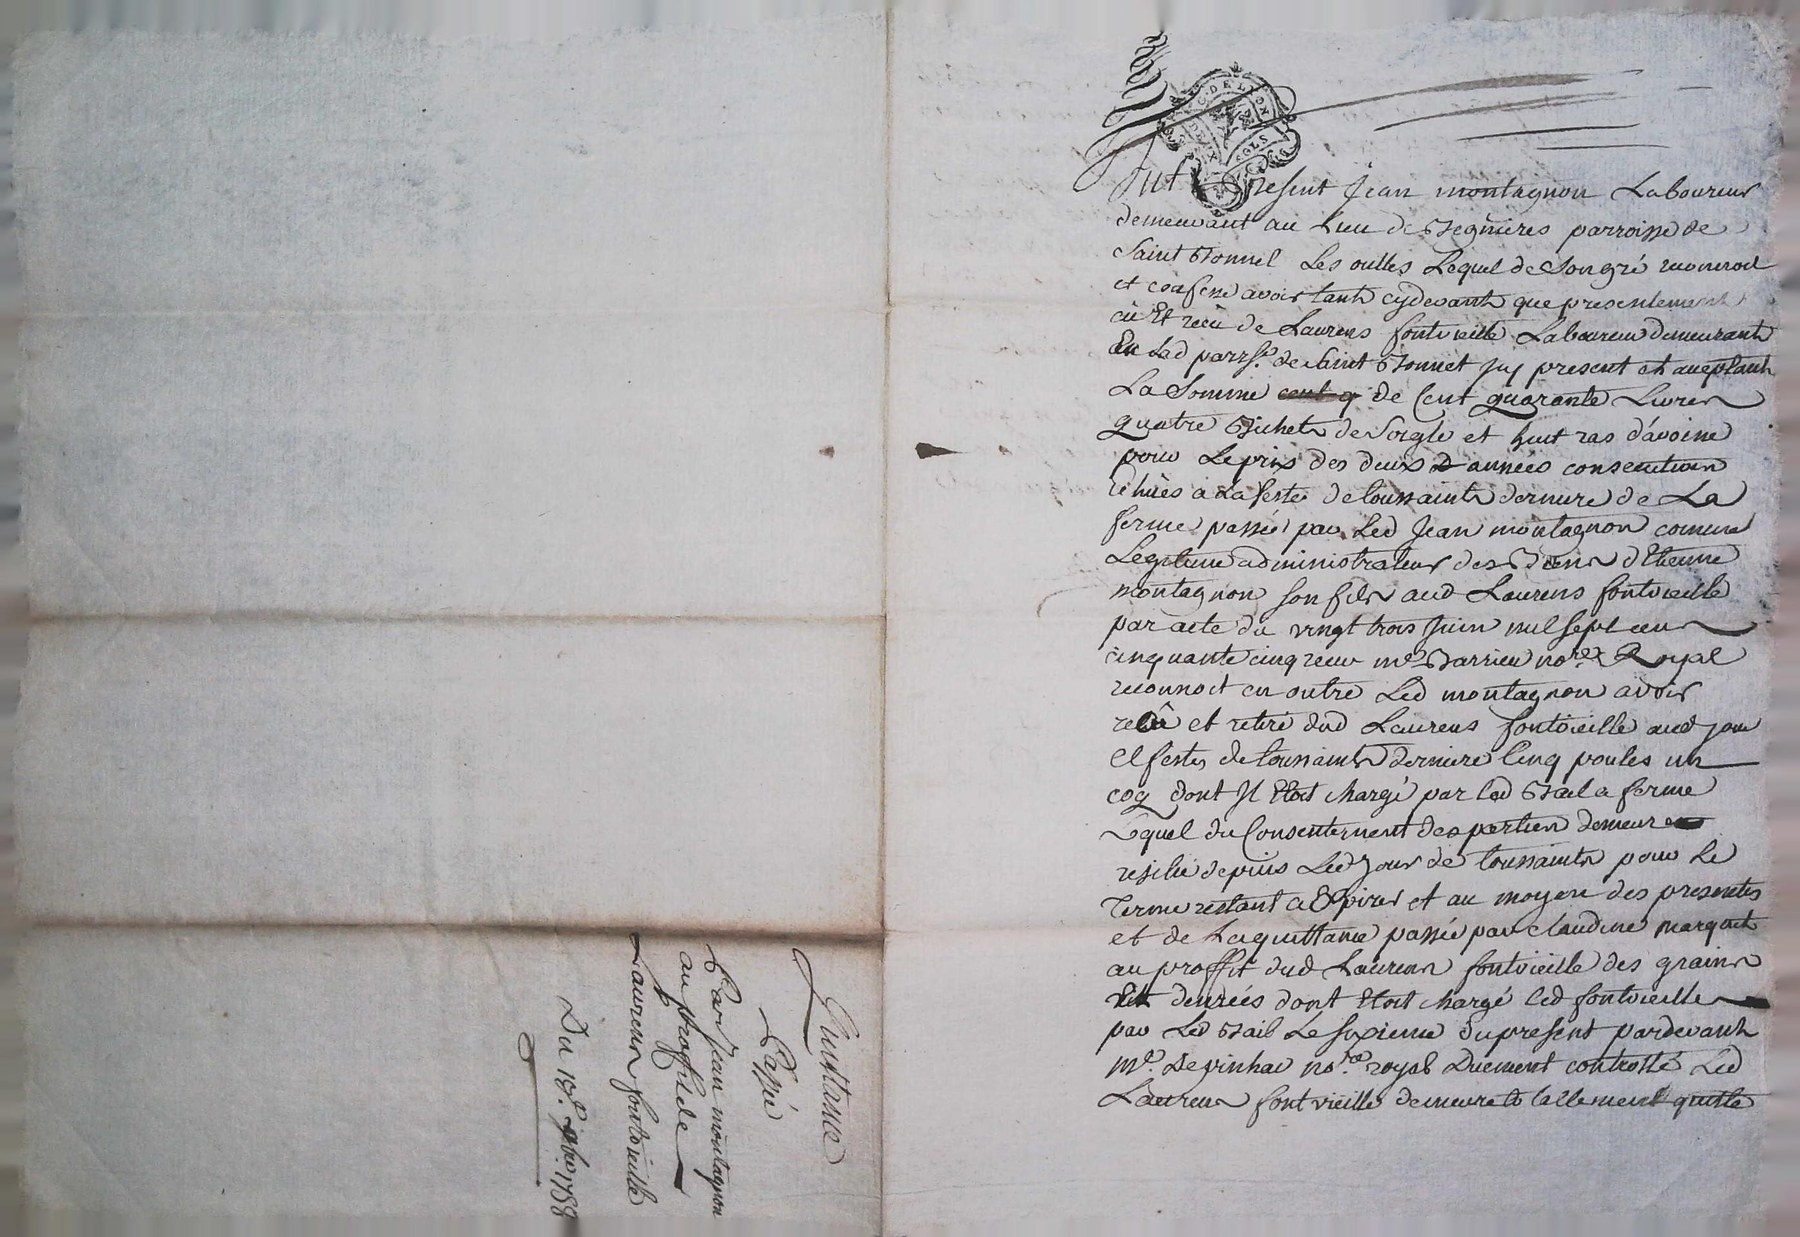 G. DE LYON
DEUX SOLS
Fut Present Jean montagnon Laboureur
demeurant au Lieu de Begnieres parroisse de
Saint Bonnet Les oulles Lequel de Son gré reconnoit
et confesse avoir tant cydevant que presentement
eû Et reçu de Laurens fontvieille Laboureur demeurant
En Lad parrse. de Saint Bonnet Icy present et aceptant
La Somme cent q de Cent quarante Livres
quatre Bichets de Soigle et huit ras d'avoine
pour Le prix des deux 2 années consecutives
échües a La feste de toussaints derniere de La
ferme passée par Led Jean montagnon comme
Legitime administrateur des Biens d'Etienne
montagnon son fils aud Laurens fontvieille
par acte du vingt trois Juin mil sept cens
cinquante cinq recu me. Barrieu nore. Royal
reconnoit en outre Led montagnon avoir
reçû et retiré dud Laurens fontvieille aud jour
Et feste de toussaints derniere Cinq poules un
coq dont Il Etoit chargé par Led Bail a ferme
Lequel du Consentement des parties demeure
resilié depuis Led Jour de toussaints pour le
Terme restant a Expirer et au moyen des presentes
et de La quittance passée par Claudine marquet
au proffit dud Laurens fontvieille des grains
Et denrées dont Etoit chargé led fontvieille
par Led Bail Le sixieme du present pardevant
me. Devinhac nore. royal Duement controllé Led
Laurens fontvieille demeure totallement quitte
Quittance
Passée
Par Jean montagnon
au proffit de
Laurens fontvieille
Du 18e. 9bre 1758